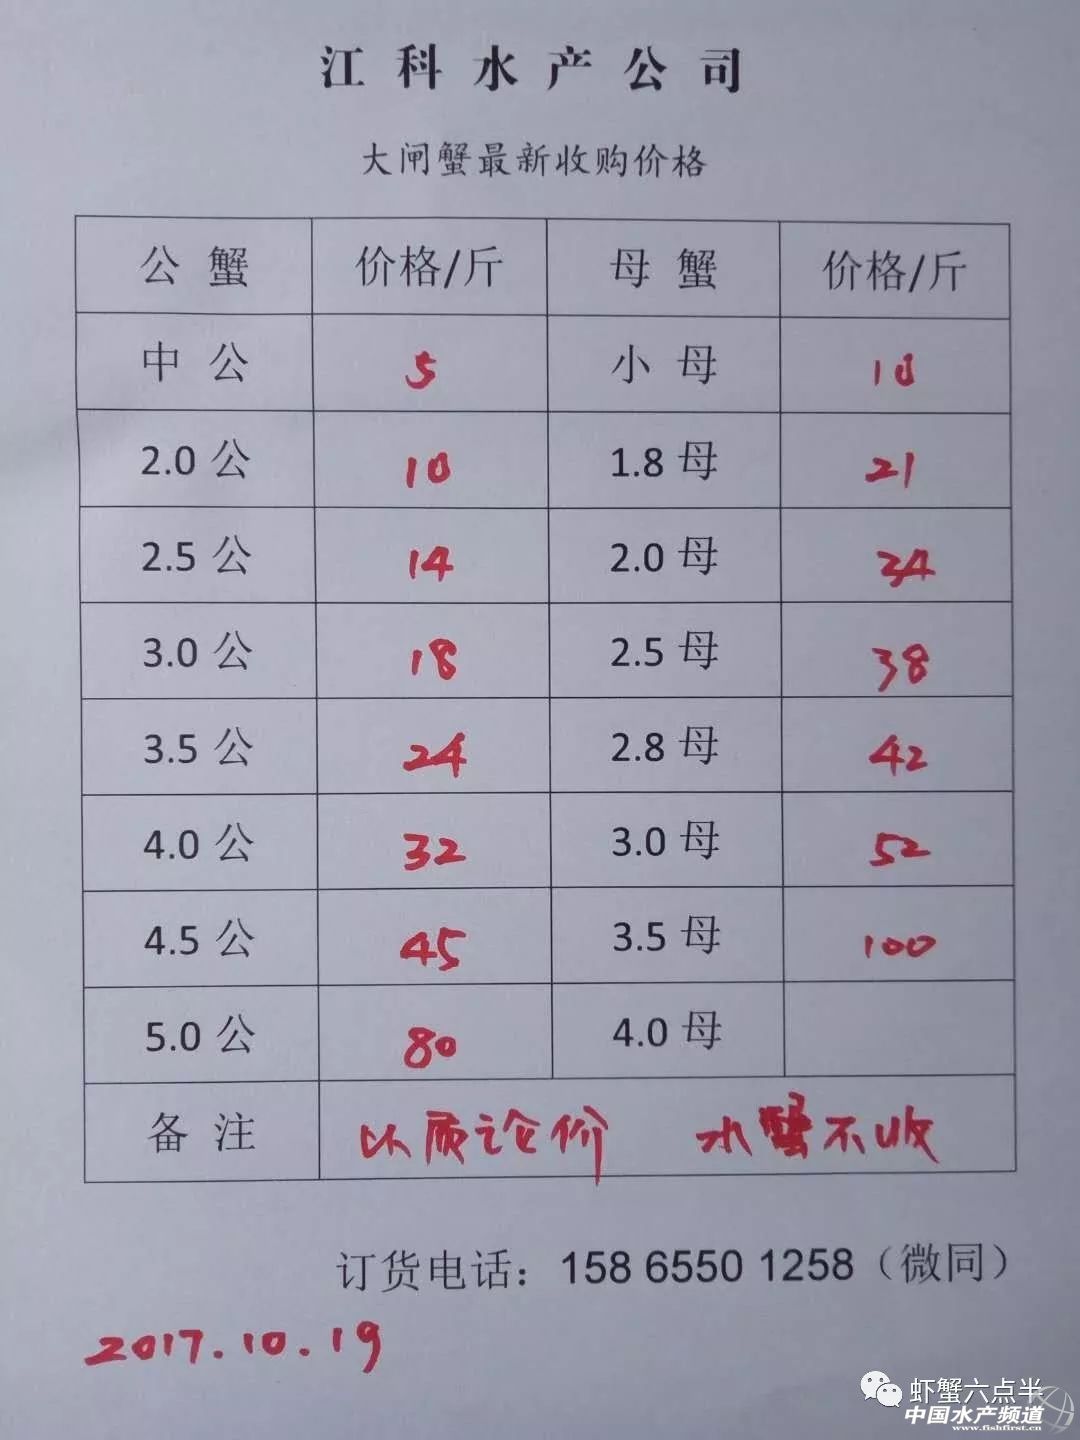 江科水产公司
大闸蟹最新收购价格
公蟹 价格/斤 母蟹 价格/斤
中公 5 小母 10
2.0公 10 1.8母 21
2.5公 14 2.0母 34
3.0公 18 2.5母 38
3.5公 24 2.8母 42
4.0公 32 3.0母 52
4.5公 45 3.5母 100
5.0公 80 4.0母
备注 以质论价 水蟹不收
订货电话：158 6550 1258（微同）
2017.10.19
虾蟹六点半
中国水产频道
www.fishfirst.cn